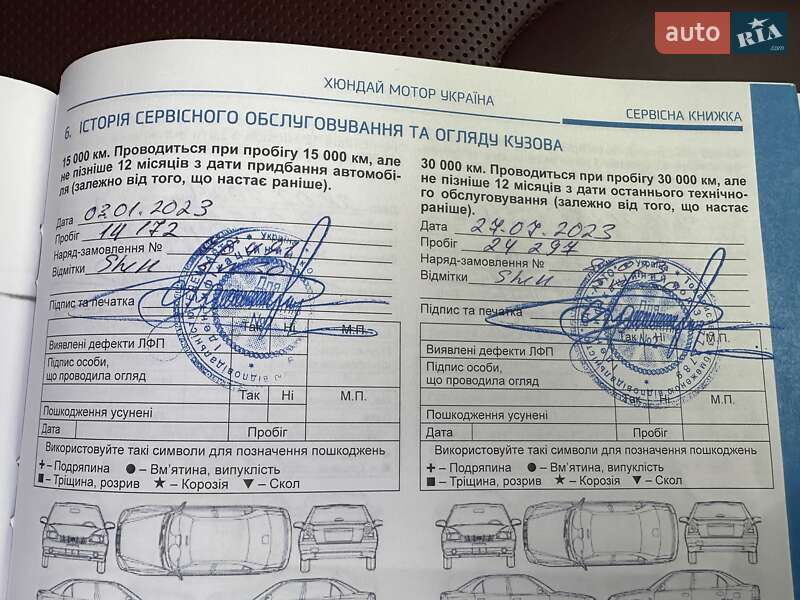 auto RIA.com
ХЮНДАЙ МОТОР УКРАЇНА
СЕРВІСНА КНИЖКА
6. ІСТОРІЯ СЕРВІСНОГО ОБСЛУГОВУВАННЯ ТА ОГЛЯДУ КУЗОВА
15 000 км. Проводиться при пробігу 15 000 км, але
не пізніше 12 місяців з дати придбання автомобі-
ля (залежно від того, що настає раніше).
Дата 03.01.2023
Пробіг 14 172
Наряд-замовлення №
Відмітки
Підпис та печатка
Так Ні М.П.
Виявлені дефекти ЛФП
Підпис особи,
що проводила огляд
Так Ні М.П.
Пошкодження усунені
Дата Пробіг
Використовуйте такі символи для позначення пошкоджень
+ – Подряпина ● – Вм’ятина, випуклість
■ – Тріщина, розрив ★ – Корозія ▼ – Скол
30 000 км. Проводиться при пробігу 30 000 км, але
не пізніше 12 місяців з дати останнього технічно-
го обслуговування (залежно від того, що настає
раніше).
Дата 27.07.2023
Пробіг 24 297
Наряд-замовлення №
Відмітки
Підпис та печатка
Так Ні М.П.
Виявлені дефекти ЛФП
Підпис особи,
що проводила огляд
Так Ні М.П.
Пошкодження усунені
Дата Пробіг
Використовуйте такі символи для позначення пошкоджень
+ – Подряпина ● – Вм’ятина, випуклість
■ – Тріщина, розрив ★ – Корозія ▼ – Скол